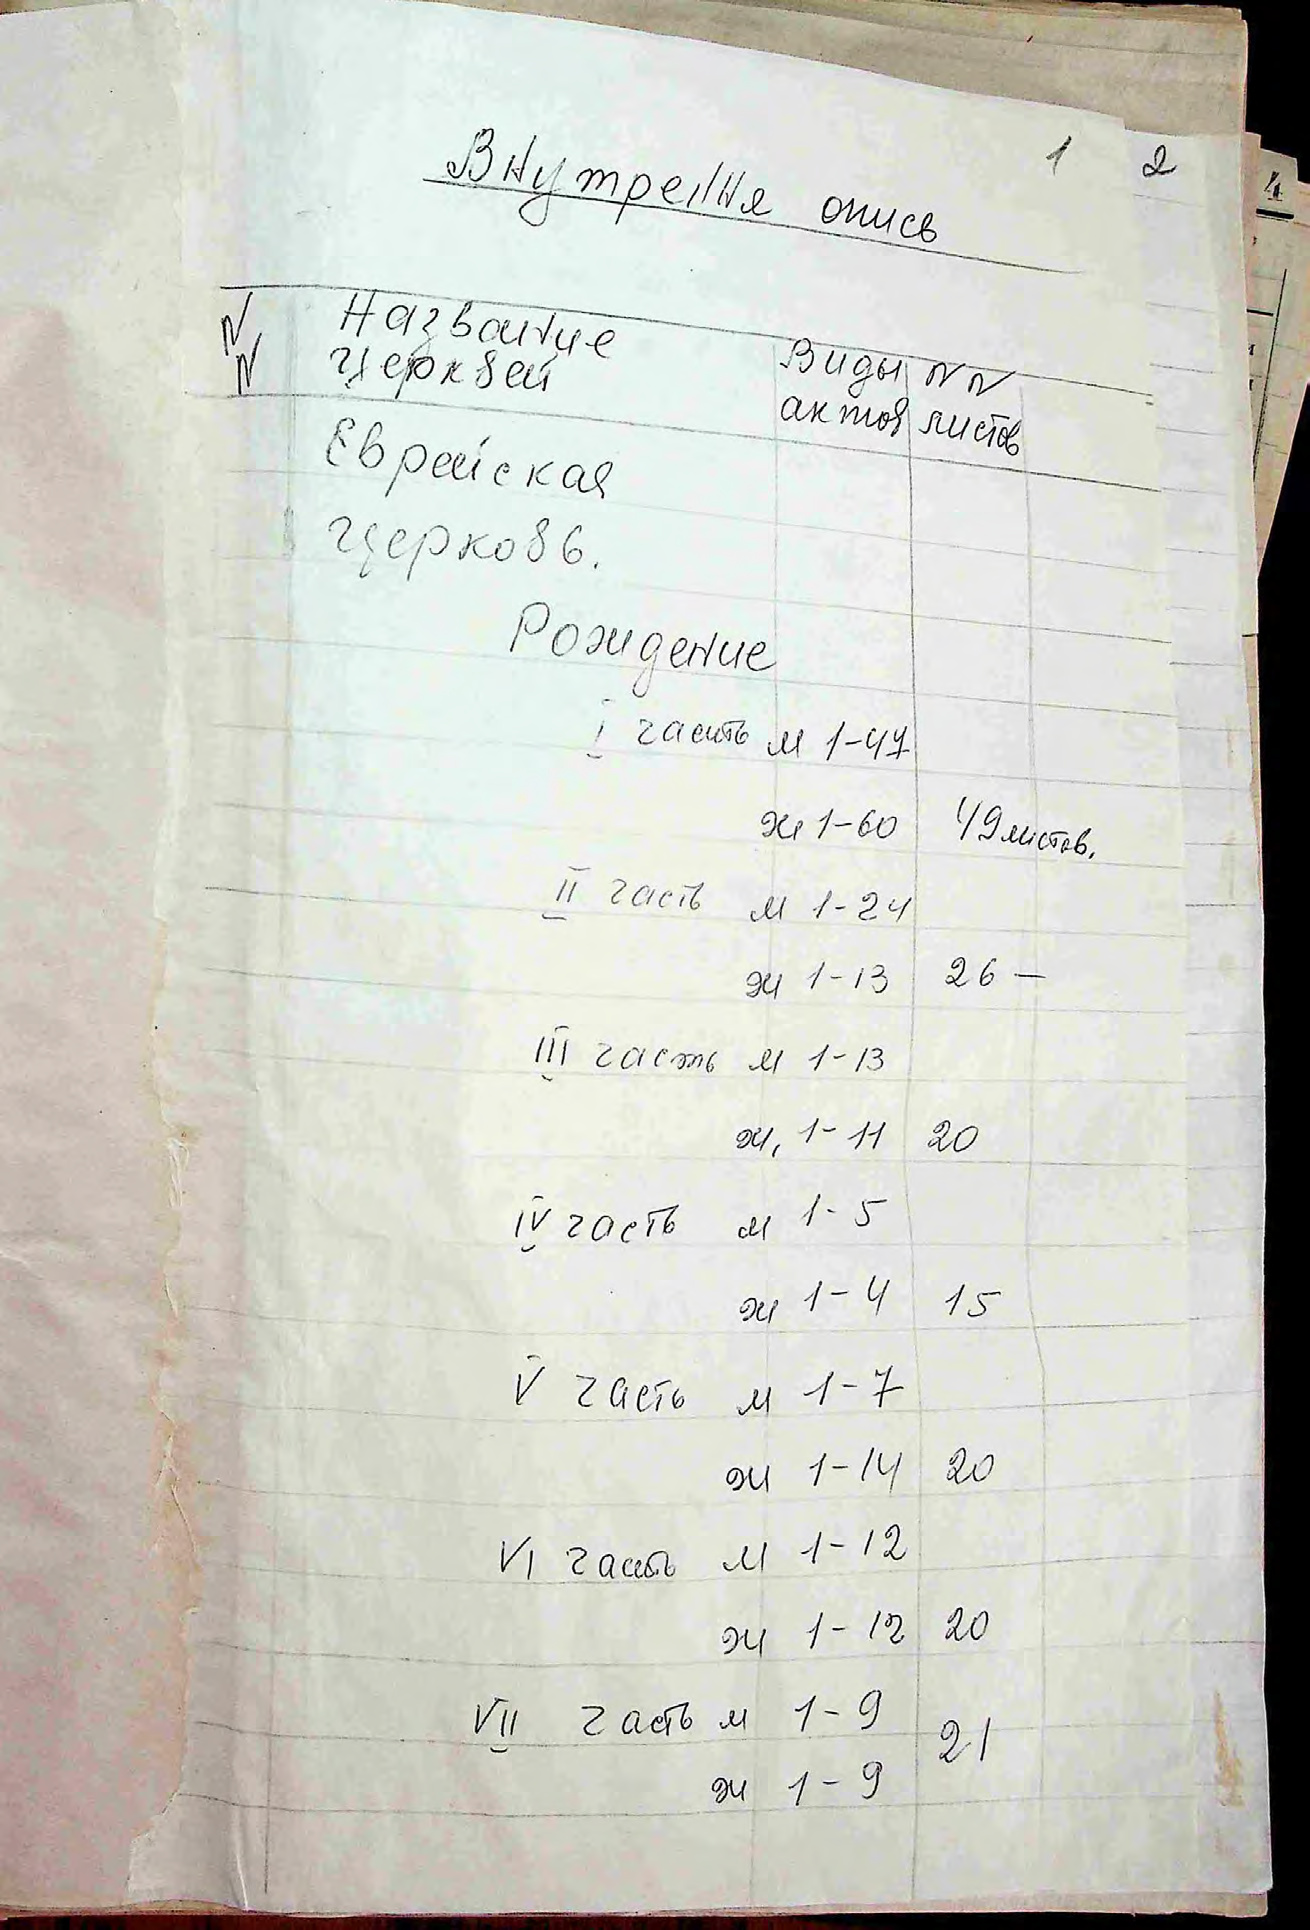 1 2
4
Внутрення опись
N Название
N церквей
Виды NN
актов листов
Еврейская
церковь.
Рождение
I часть м 1-47
ж 1-60 49 листов.
II часть м 1-24
ж 1-13 26 —
III часть м 1-13
ж, 1-11 20
IV часть м 1-5
ж 1-4 15
V часть м 1-7
ж 1-14 20
VI часть м 1-12
ж 1-12 20
VII часть м 1-9
21
ж 1-9